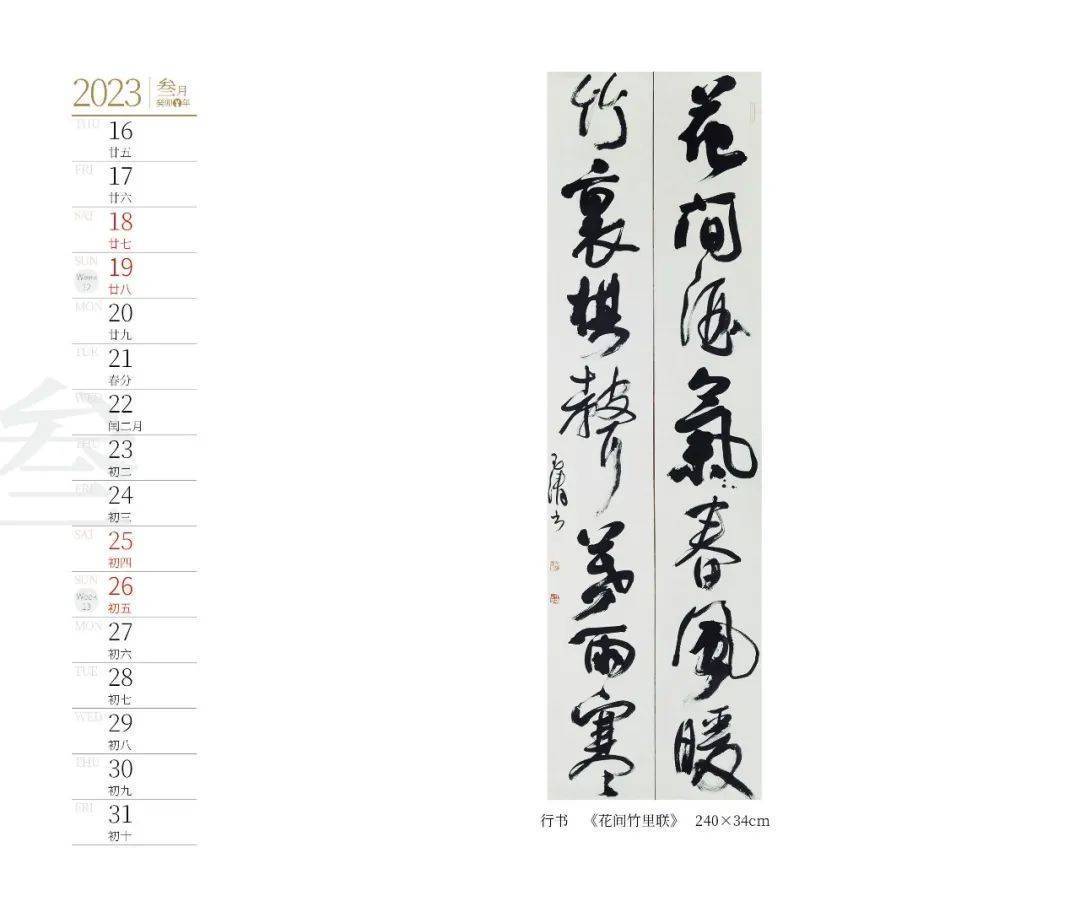 2023
叁月
癸卯年
THU 16
廿五
FRI 17
廿六
SAT 18
廿七
SUN 19
Week 12 廿八
MON 20
廿九
TUE 21
春分
WED 22
闰二月
THU 23
初二
FRI 24
初三
SAT 25
初四
SUN 26
Week 13 初五
MON 27
初六
TUE 28
初七
WED 29
初八
THU 30
初九
FRI 31
初十
叁
花間酒氣春風暖
竹裏棋聲雨寒
行书 《花间竹里联》 240×34cm